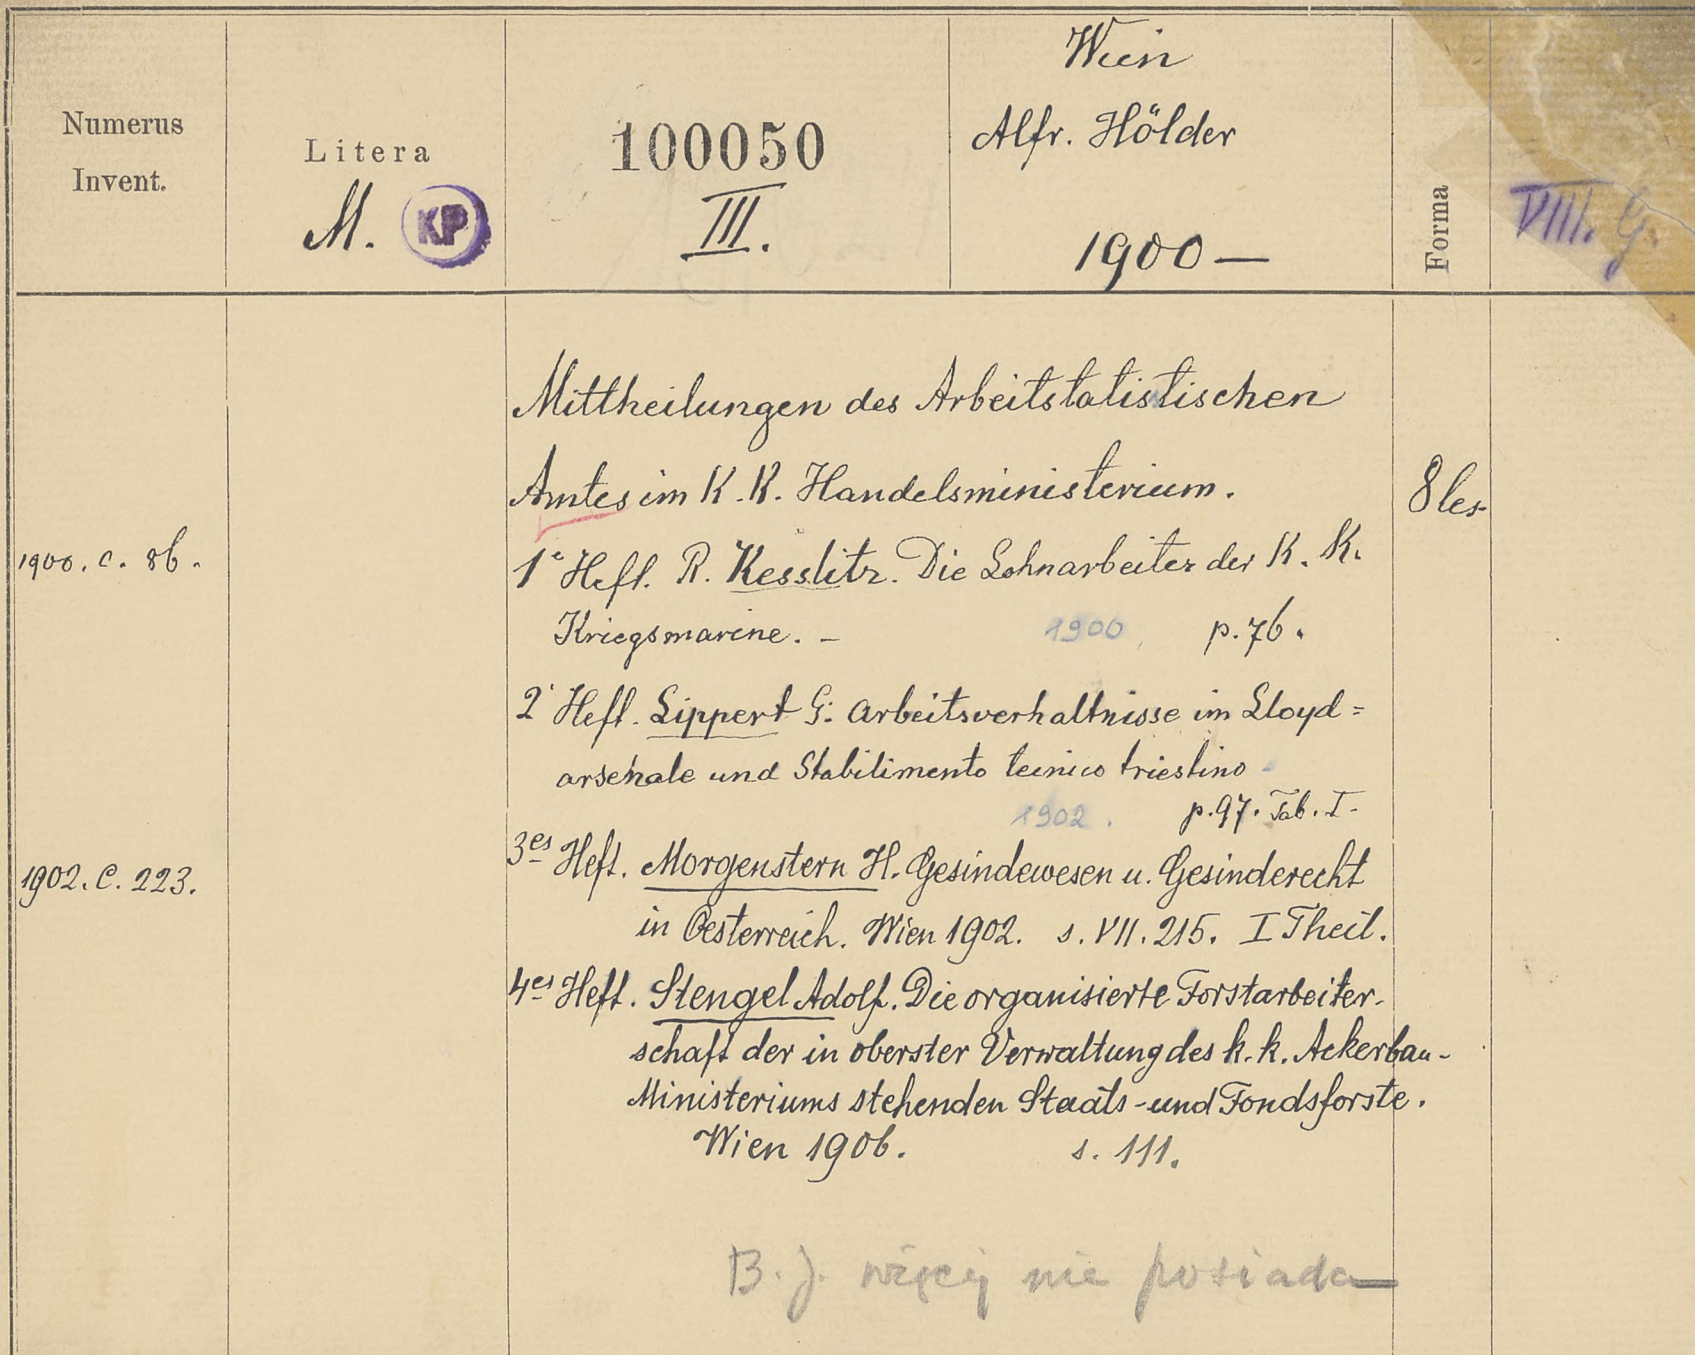 Numerus
Invent.
Litera
M. KP
100050
III.
Wien
Alfr. Hölder
1900 —
Forma
VIII. G.
Mittheilungen des Arbeitstatistischen
Amtes im K. K. Handelsministerium.
8
1900. C. 86.
1e Heft. R. Kesslitz. Die Lohnarbeiter der K. K.
Kriegsmarine. – 1900 p. 76.
2 Heft. Lippert G: Arbeitsverhaltnisse im Lloyd=
arsenale und Stabilimento tecnico triestino
1902. p. 97. Tab. I.
1902. C. 223.
3es Heft. Morgenstern H. Gesindewesen u. Gesinderecht
in Oesterreich. Wien 1902. s. VII. 215. I Theil.
4es Heft. Stengel Adolf. Die organisierte Forstarbeiter-
schaft der in oberster Verwaltung des k. k. Ackerbau-
Ministeriums stehenden Staats- und Fondsforste.
Wien 1906. s. 111.
B. J. więcej nie posiada